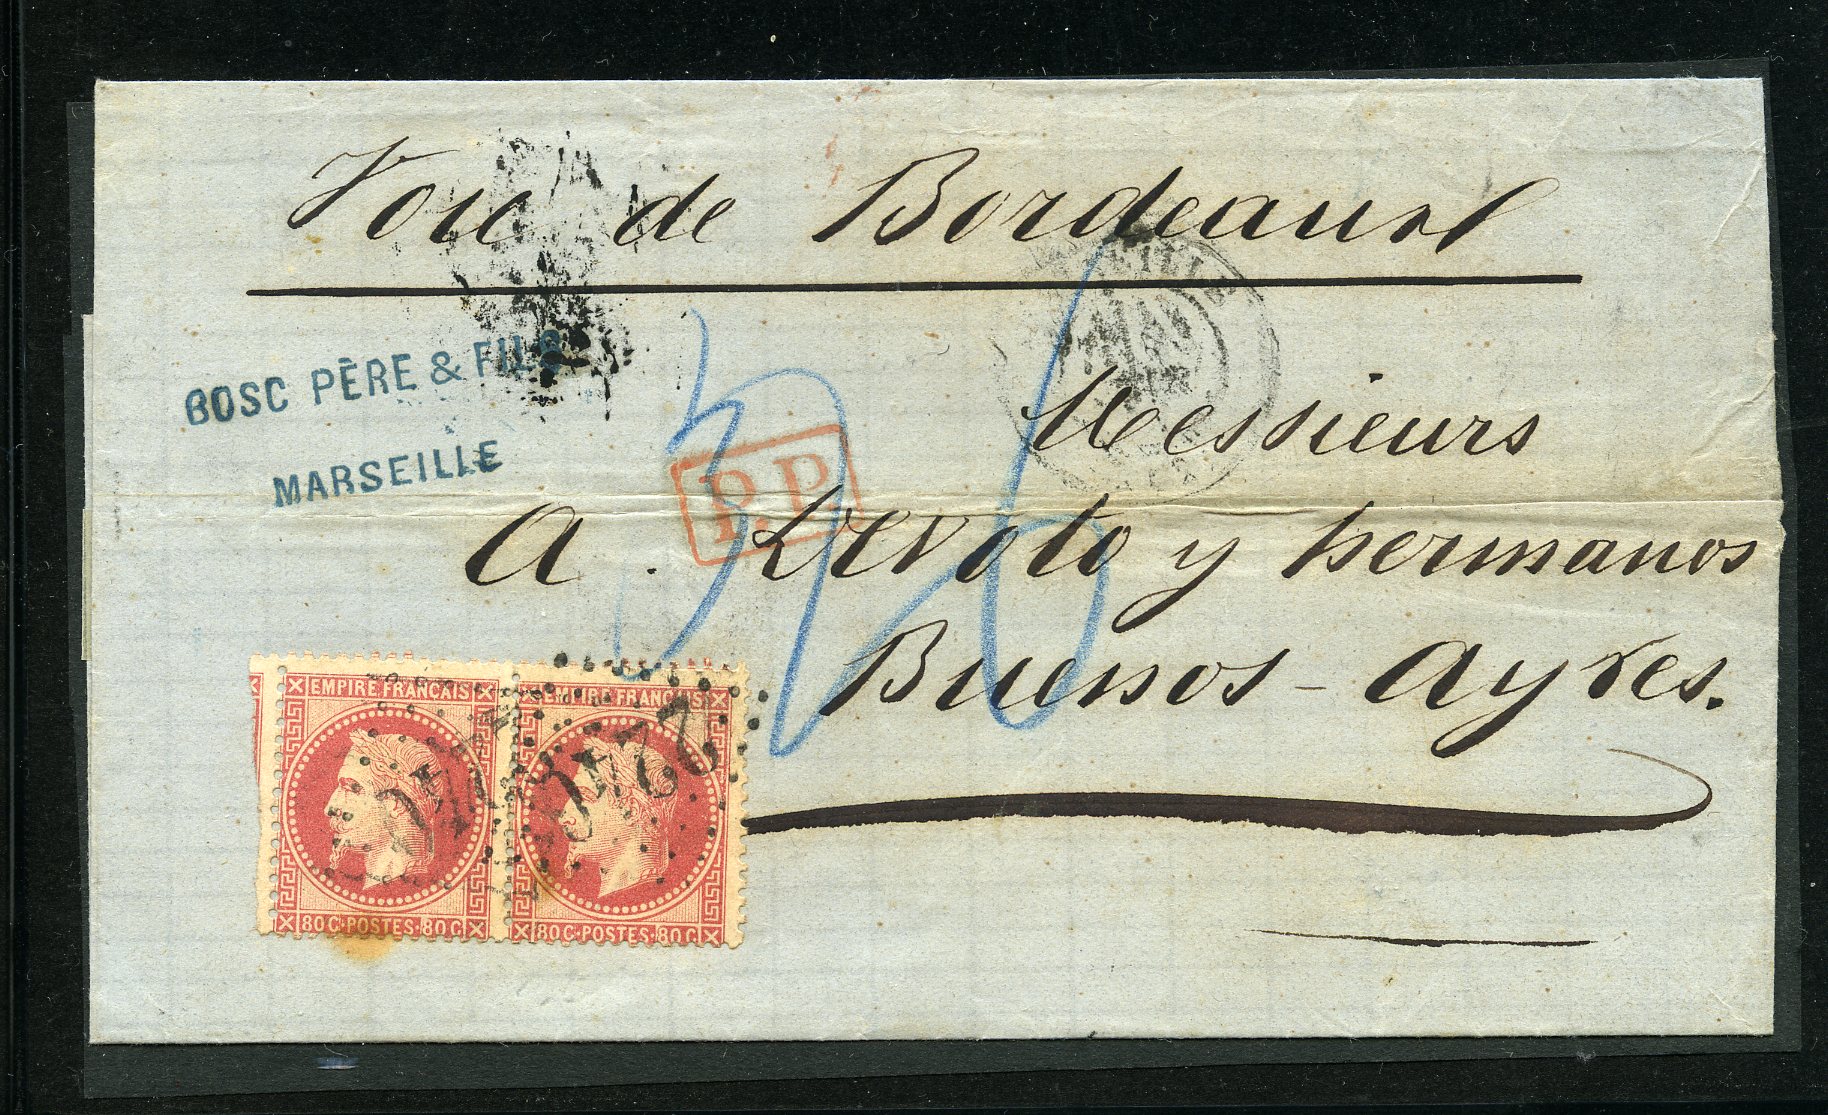 Voie de Bordeaux
BOSC PÈRE & FILS
MARSEILLE
P.P.
Messieurs
A. Devoto y hermanos
Buenos-Ayres.
EMPIRE FRANÇAIS
80 C · POSTES · 80 C
EMPIRE FRANÇAIS
80 C · POSTES · 80 C
2240